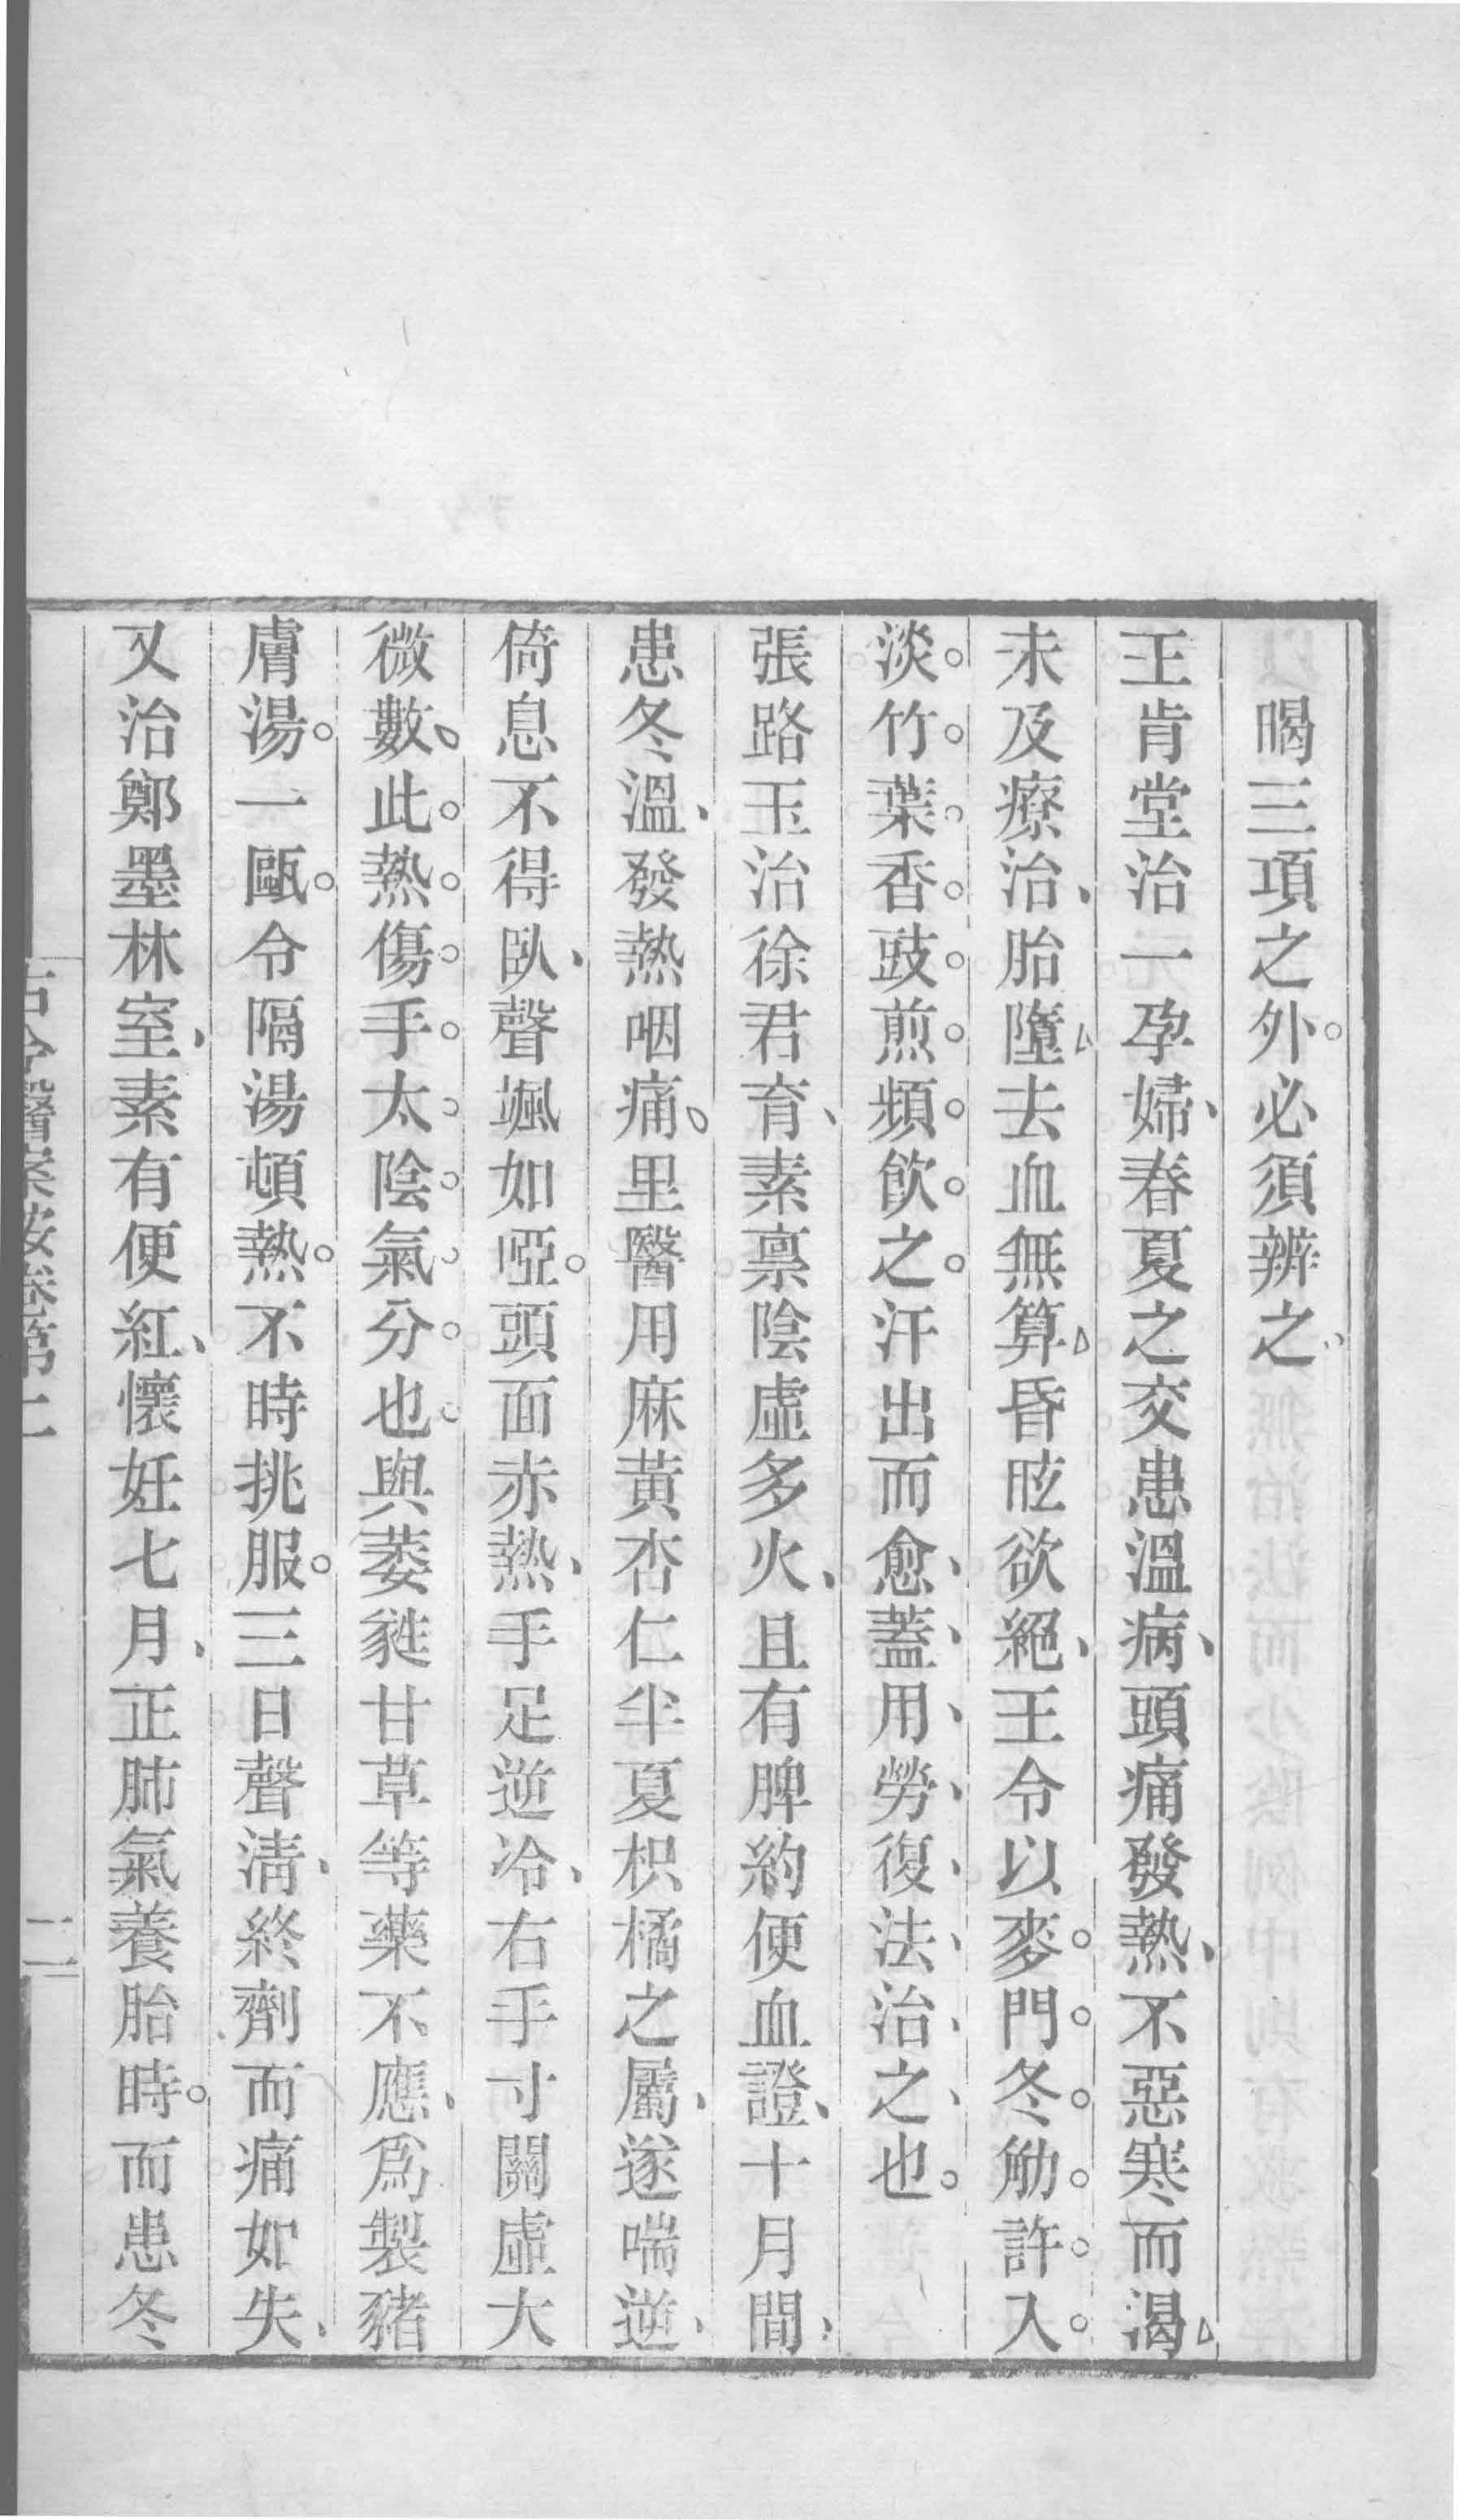 暍三項之外。必須辨之、
王肯堂治一孕婦、春夏之交患溫病、頭痛發熱、不惡寒而渴△
未及療治、胎墮△去血無算△昏眩欲絕、王令以麥。門。冬。觔。許。入。
淡。竹。葉。香。豉。煎。頻。飮。之。汗出而愈、蓋、用、勞、復、法、治、之、也。
張路玉治徐君育、素禀陰虛多火、且有脾約便血證、十月間、
患冬溫、發熱咽痛。里醫用麻黃杏仁半夏枳橘之屬、遂喘逆、
倚息不得臥、聲颯如啞。頭面赤熱、手足逆冷、右手寸關虛大
微數。此。熱。傷。手。太。陰。氣。分。也。與萎蕤甘草等藥不應、爲製豬
膚湯。一甌。令隔湯頓熱。不時挑服。三日聲淸、終劑而痛如失、
又治鄭墨林室、素有便紅、懷妊七月、正肺氣養胎時。而患冬
古今醫案按卷第二
二